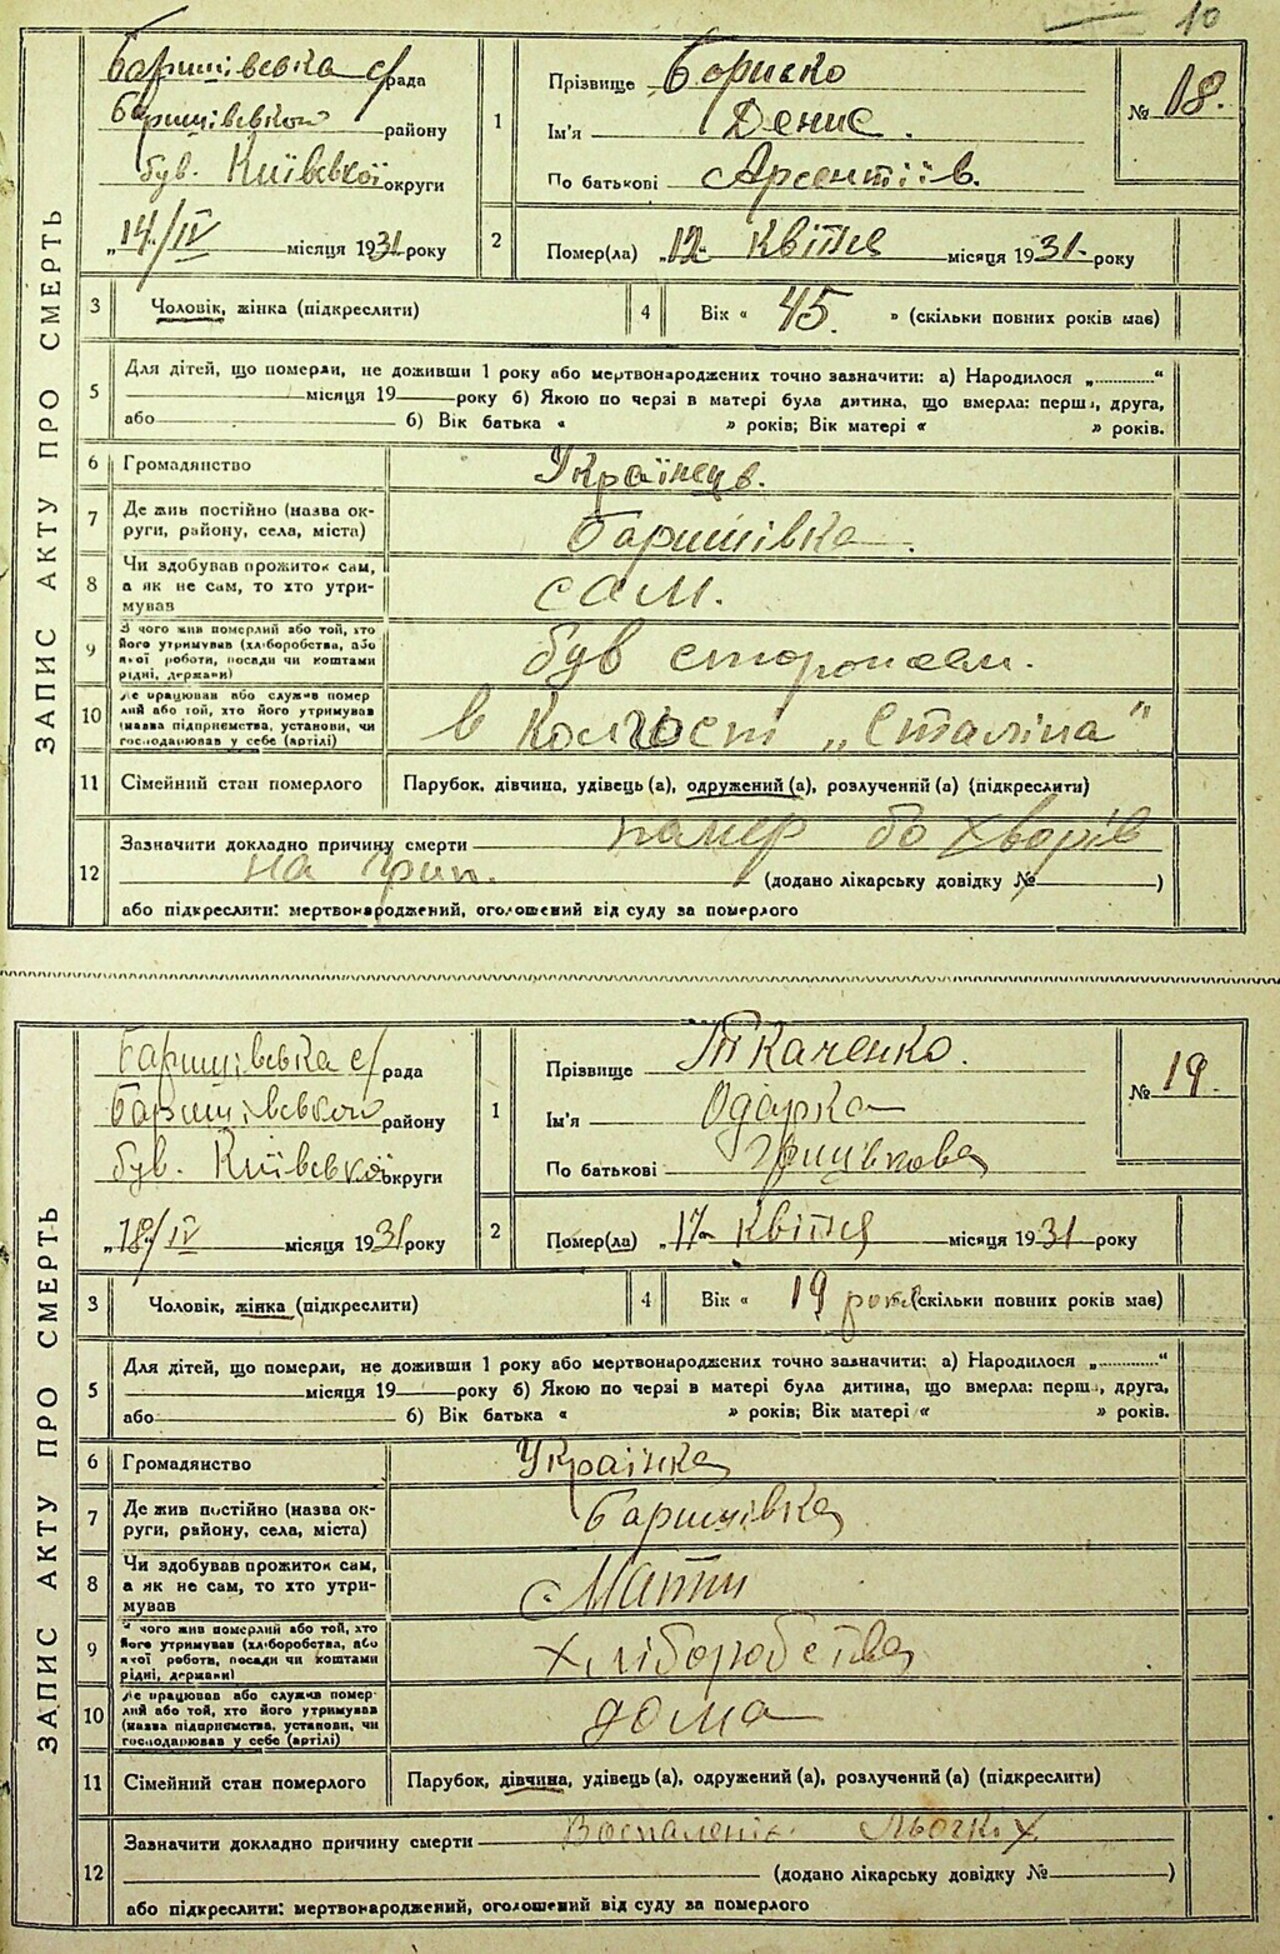 10
ЗАПИС АКТУ ПРО СМЕРТЬ
Баришівська с/рада
Баришівського району
був. Київської округи
„14/IV місяця 1931 року
1
Прізвище Бориско
Ім'я Денис.
По батькові Арсентіїв.
№ 18.
2
Помер(ла) „12" Квітня місяця 1931. року
3
Чоловік, жінка (підкреслити)
4
Вік « 45. » (скільки повних років має)
5
Для дітей, що померли, не доживши 1 року або мертвонароджених точно зазначити: а) Народилося „............“
місяця 19 року б) Якою по черзі в матері була дитина, що вмерла: перша, друга,
або б) Вік батька « » років; Вік матері « » років.
6
Громадянство
Українець.
7
Де жив постійно (назва ок-
руги, району, села, міста)
Баришівка.
8
Чи здобував прожиток сам,
а як не сам, то хто утри-
мував
сам.
9
З чого жив померлий або той, хто
його утримував (хліборобства, або
якої роботи, посади чи коштами
рідні, держави)
був сторожем.
10
Де працював або служив помер
лий або той, хто його утримував
(назва підприємства, установи, чи
господарював у себе (артілі)
в Колгості „Сталіна"
11
Сімейний стан померлого
Парубок, дівчина, удівець (а), одружений (а), розлучений (а) (підкреслити)
12
Зазначити докладно причину смерти помер бо хворів
на грип. (додано лікарську довідку № )
або підкреслити: мертвонароджений, оголошений від суду за померлого
ЗАПИС АКТУ ПРО СМЕРТЬ
Баришівська с/рада
Баришівського району
був. Київської округи
„18/IV місяця 1931 року
1
Прізвище Ткаченко.
Ім'я Одарка
По батькові Грицькова
№ 19.
2
Помер(ла) „17" Квітня місяця 1931 року
3
Чоловік, жінка (підкреслити)
4
Вік « 19 років (скільки повних років має)
5
Для дітей, що померли, не доживши 1 року або мертвонароджених точно зазначити: а) Народилося „............“
місяця 19 року б) Якою по черзі в матері була дитина, що вмерла: перша, друга,
або б) Вік батька « » років; Вік матері « » років.
6
Громадянство
Українка
7
Де жив постійно (назва ок-
руги, району, села, міста)
Баришівка
8
Чи здобував прожиток сам,
а як не сам, то хто утри-
мував
Мати
9
З чого жив померлий або той, хто
його утримував (хліборобства, або
якої роботи, посади чи коштами
рідні, держави)
хліборобства
10
Де працював або служив помер-
лий або той, хто його утримував
(назва підприємства, установи, чи
господарював у себе (артілі)
дома
11
Сімейний стан померлого
Парубок, дівчина, удівець (а), одружений (а), розлучений (а) (підкреслити)
12
Зазначити докладно причину смерти Воспаленія Льогкіх
(додано лікарську довідку № )
або підкреслити: мертвонароджений, оголошений від суду за померлого